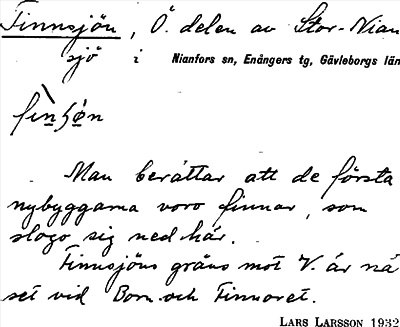 Finnsjön, Ö. delen av Stor-Nian
sjö i Nianfors sn, Enångers tg, Gävleborgs län
Man berättar att de första
nybyggarna voro finnar, som
slogo sig ned här.
Finnsjöns gräns mot V. är nä
set vid Born och Finnoret.
LARS LARSSON 1932